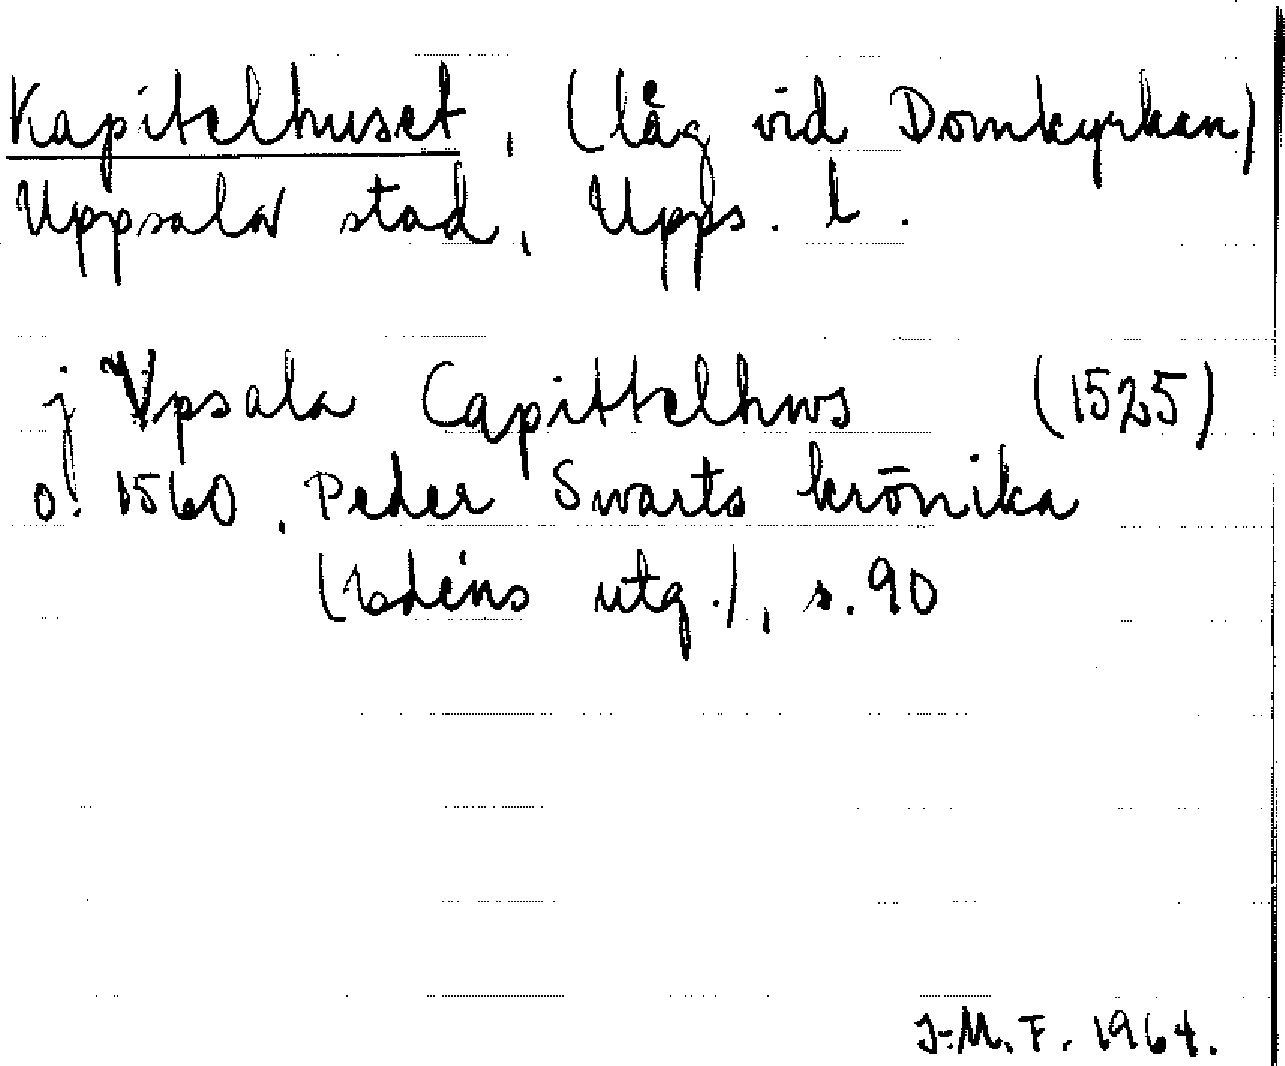 Kapitelhuset, (låg vid Domkyrkan)
Uppsala stad, Upps. l.
j Vpsala Capittelhws (1525)
o. 1560, Peder Swarts krönika
(Edéns utg.), s. 90
J-M. F. 1964.